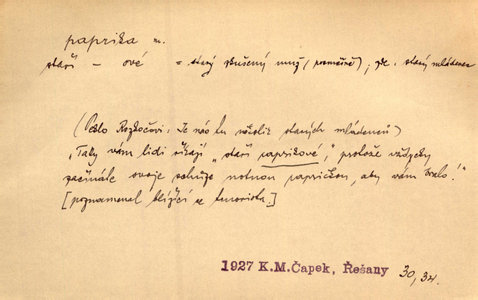 paprika m.
staří – ové = starý zkušený muž (poznáteř); zde. starý mládenec
(Pelo Rozkočovi: Je nás tu několik starých mládenců)
„Taky vám lidi říkají „staří paprikové“, protože vždycky
začínáte svoje schůze notnou papričkou, aby vám bralo!“
[poznamenal blížící se humorista.]
1927 K.M.Čapek, Řešany 30,34.